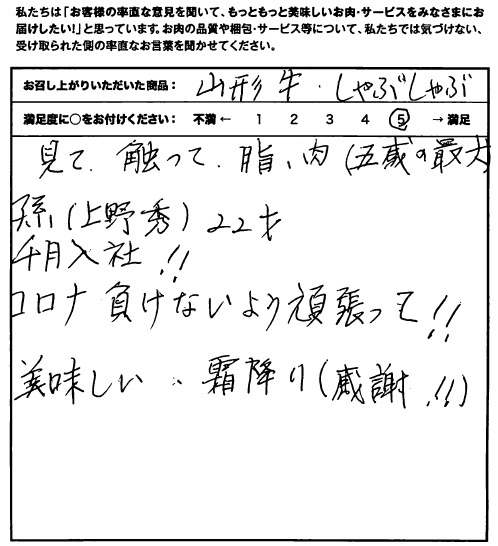 私たちは「お客様の率直な意見を聞いて、もっともっと美味しいお肉・サービスをみなさまにお
届けしたい!」と思っています。お肉の品質や梱包・サービス等について、私たちでは気づけない、
受け取られた側の率直なお言葉を聞かせてください。
お召し上がりいただいた商品: 山形牛・しゃぶしゃぶ
満足度に○をお付けください: 不満 ← 1 2 3 4 5 → 満足
見て、触って、脂、肉(五歳の最大
孫、(上野秀)22才
千月入社!!
コロナ負けないよう頑張って!!
美味しい、、霜降り(感謝!!)